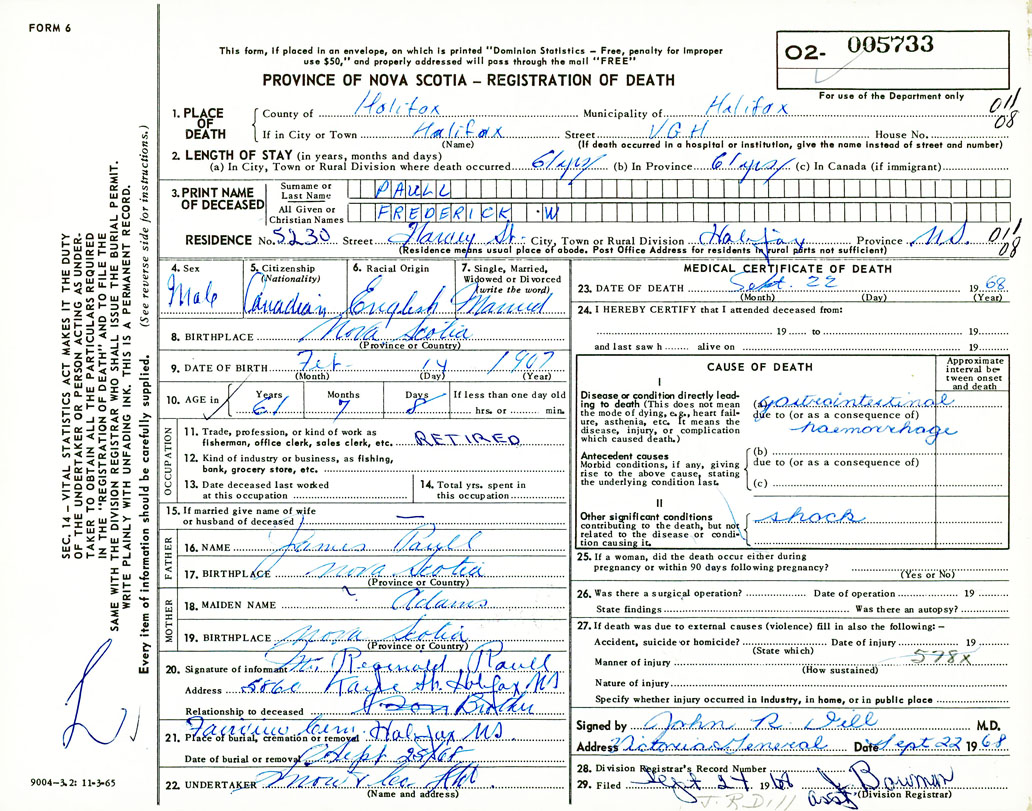 FORM 6
This form, if placed in an envelope, on which is printed "Dominion Statistics – Free, penalty for improper
use $50," and properly addressed will pass through the mail "FREE"
O2- 005733
PROVINCE OF NOVA SCOTIA – REGISTRATION OF DEATH
For use of the Department only
1. PLACE OF DEATH
County of Halifax Municipality of Halifax 011
If in City or Town Halifax Street VGH House No. 08
(Name) (If death occurred in a hospital or institution, give the name instead of street and number)
2. LENGTH OF STAY (in years, months and days)
(a) In City, Town or Rural Division where death occurred 61 yrs (b) In Province 61 yrs (c) In Canada (if immigrant)
3. PRINT NAME OF DECEASED
Surname or Last Name PAULL
All Given or Christian Names FREDERICK W
RESIDENCE No. 5230 Street Harvey St. City, Town or Rural Division Halifax Province NS. 011
(Residence means usual place of abode. Post Office Address for residents in rural parts not sufficient) 08
4. Sex Male
5. Citizenship (Nationality) Canadian
6. Racial Origin English
7. Single, Married, Widowed or Divorced (write the word) Married
8. BIRTHPLACE Nova Scotia
(Province or Country)
9. DATE OF BIRTH Feb. 14 1907
(Month) (Day) (Year)
10. AGE in Years Months Days If less than one day old
61 7 8 hrs. or min.
OCCUPATION
11. Trade, profession, or kind of work as
fisherman, office clerk, sales clerk, etc. RETIRED
12. Kind of industry or business, as fishing,
bank, grocery store, etc.
13. Date deceased last worked
at this occupation
14. Total yrs. spent in
this occupation
15. If married give name of wife
or husband of deceased —
FATHER
16. NAME James Paull
17. BIRTHPLACE Nova Scotia
(Province or Country)
MOTHER
18. MAIDEN NAME ? Adams
19. BIRTHPLACE Nova Scotia
(Province or Country)
20. Signature of informant Mr. Reginald Paull
Address 5860 Kaye St. Halifax NS
Relationship to deceased Son Brother
21. Place of burial, cremation or removal Fairview Cem. Halifax NS.
Date of burial or removal Sept 25/68
22. UNDERTAKER Snow & Co
(Name and address)
MEDICAL CERTIFICATE OF DEATH
23. DATE OF DEATH Sept. 22 1968
(Month) (Day) (Year)
24. I HEREBY CERTIFY that I attended deceased from:
19 to 19
and last saw h alive on 19
CAUSE OF DEATH
Approximate interval between onset and death
I
Disease or condition directly leading to death (This does not mean
the mode of dying, e.g., heart failure, asthenia, etc. It means the
disease, injury, or complication
which caused death.)
(a) gastrointestinal
due to (or as a consequence of)
haemorrhage
Antecedent causes
Morbid conditions, if any, giving
rise to the above cause, stating
the underlying condition last.
(b)
due to (or as a consequence of)
(c)
II
Other significant conditions
contributing to the death, but not
related to the disease or condition causing it.
shock
25. If a woman, did the death occur either during
pregnancy or within 90 days following pregnancy?
(Yes or No)
26. Was there a surgical operation? Date of operation 19
State findings Was there an autopsy?
27. If death was due to external causes (violence) fill in also the following: –
Accident, suicide or homicide? Date of injury 19
(State which)
Manner of injury 598X
(How sustained)
Nature of injury
Specify whether injury occurred in Industry, in home, or in public place
Signed by John R. Dill M.D.
Address Victoria General Date Sept 22 1968
28. Division Registrar's Record Number
29. Filed Sept 24 1968 J Bowman
asst (Division Registrar)
J. R Dill
SEC. 14 – VITAL STATISTICS ACT MAKES IT THE DUTY
OF THE UNDERTAKER OR PERSON ACTING AS UNDER-
TAKER TO OBTAIN ALL THE PARTICULARS REQUIRED
IN THE "REGISTRATION OF DEATH" AND TO FILE THE
SAME WITH THE DIVISION REGISTRAR WHO SHALL ISSUE THE BURIAL PERMIT.
WRITE PLAINLY WITH UNFADING INK. THIS IS A PERMANENT RECORD.
Every item of information should be carefully supplied. (See reverse side for instructions.)
9004-3.2: 11-3-65